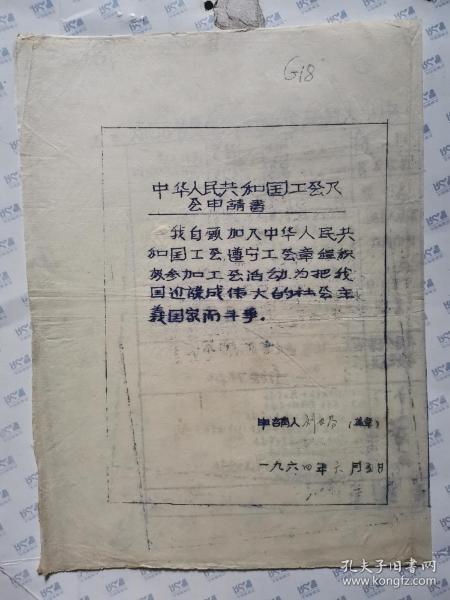 G18
中华人民共和国工会入
会申請書
我自愿加入中华人民共
和国工会，遵守工会章程，积
极参加工会活动，为把我
国建設成伟大的社会主
義国家而斗争。
申請人 （盖章）
一九六四年六月五日
孔夫子旧书网
www.kongfz.com